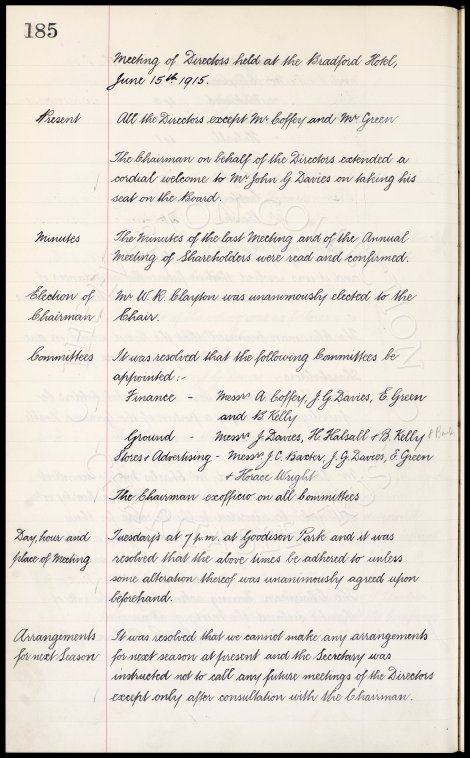 185
Meeting of Directors held at the Bradford Hotel,
June 15th 1915.
Present All the Directors except Mr Coffey and Mr Green
The Chairman on behalf of the Directors extended a
cordial welcome to Mr John G Davies on taking his
seat on the Board.
Minutes The Minutes of the last Meeting and of the Annual
Meeting of Shareholders were read and confirmed.
Election of Mr W.R. Clayton was unanimously elected to the
Chairman Chair.
Committees It was resolved that the following Committees be
appointed:-
Finance - Messrs A Coffey, J.G. Davies, E. Green
and B. Kelly
Ground - Messrs J. Davies, H. Halsall & B. Kelly
Stores & Advertising - Messrs J.C. Baxter, J.G. Davies, E. Green
& Horace Wright
The Chairman exofficio on all Committees
Day, hour and Tuesdays at 7 p.m. at Goodison Park and it was
place of Meeting resolved that the above times be adhered to unless
some alteration thereof was unanimously agreed upon
beforehand.
Arrangements It was resolved that we cannot make any arrangements
for next Season for next season at present and the Secretary was
instructed not to call any future meetings of the Directors
except only after consultation with the Chairman.